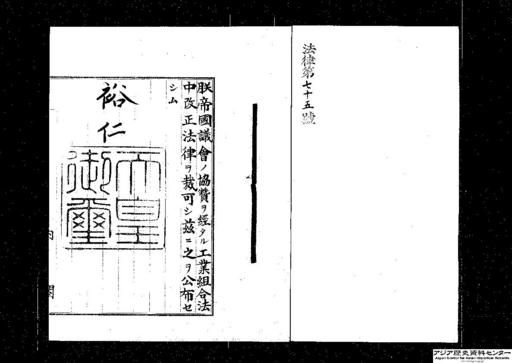 法律第七十五號
朕帝國議會ノ協贊ヲ經タル工業組合法
中改正法律ヲ裁可シ茲ニ之ヲ公布セ
シム
裕仁
天皇
御璽
内
閣
アジア歴史資料センター
Japan Center for Asian Historical Records